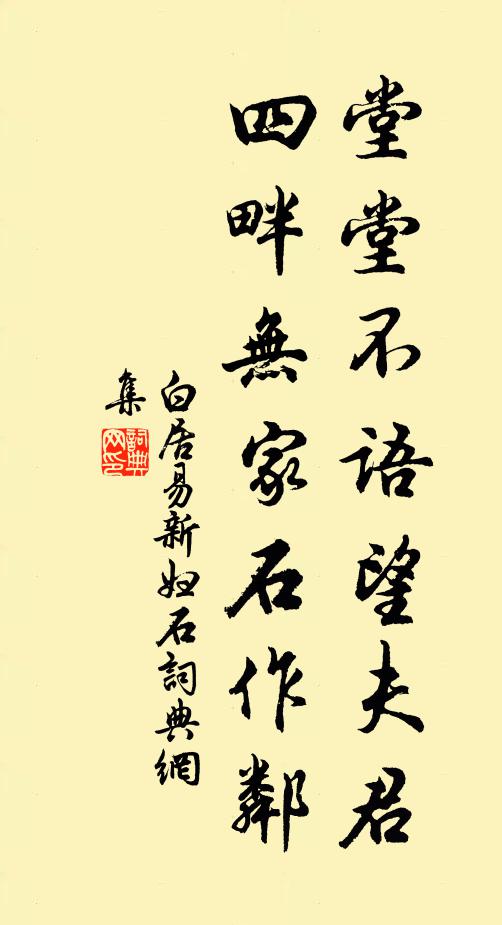 堂堂不語望夫君
四畔無家石作鄰
白居易新婦石詞典網
集
詞典網印